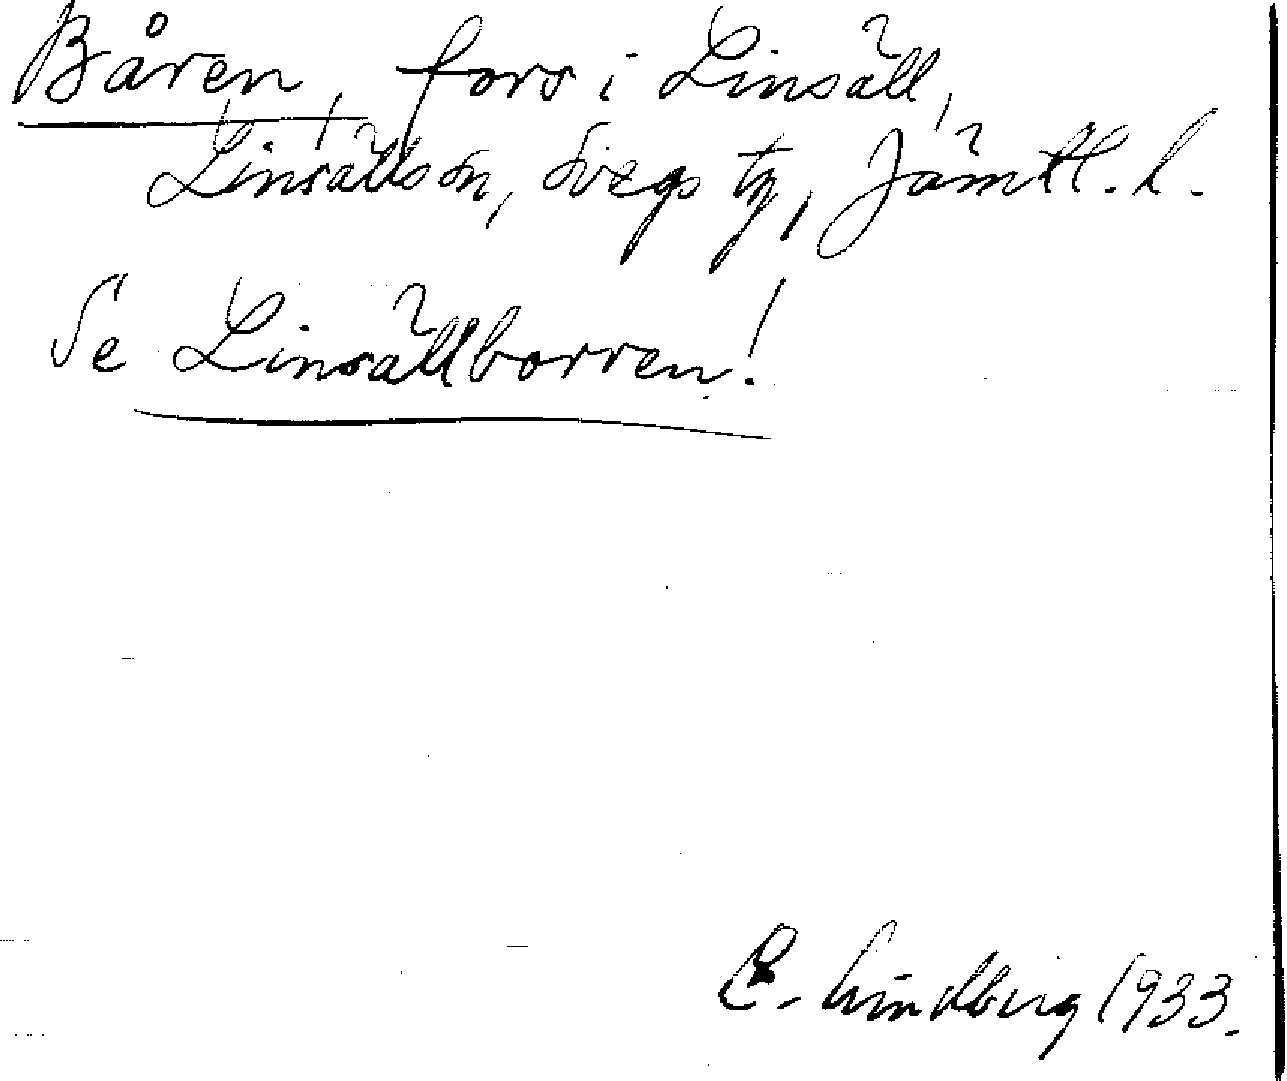 Båren, fors i Linsäll,
Linsälls sn, Svegs tg, Jämtl. l.
Se Linsällborren!
E. Lindberg 1933.